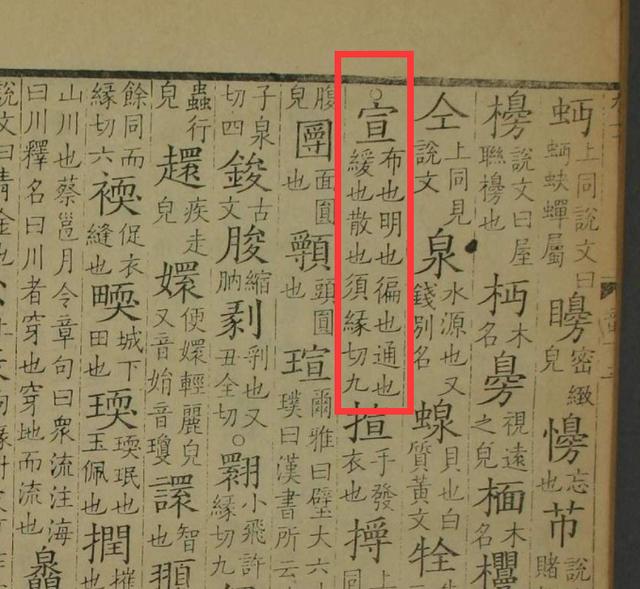 上同說文曰蚨蟬屬矏密緻皃㦟忘也芇說賭
櫋說文曰屋聯櫋也木名臱視遠之皃木名
仝上同見說文泉水源也又錢別名貝也白質黃文牷
○宣布也明也徧也通也緩也散也須緣切九揎手發衣也撏上同
腹皃面圓也頭圓也瑄爾雅曰璧大六璞曰漢書所云
子泉切四鋑古文朘縮朒剶剝也又丑全切○翾小飛許緣切九
蟲行皃疾走皃嬛便嬛輕麗皃又音娟音瓊譞智也
餘同而緣切六促衣縫也城下田也瑌瑌珉也玉佩也撋摧
山川也蔡邕月令章句曰眾流注海曰川釋名曰川者穿也穿地而流也灥
說文曰青金也